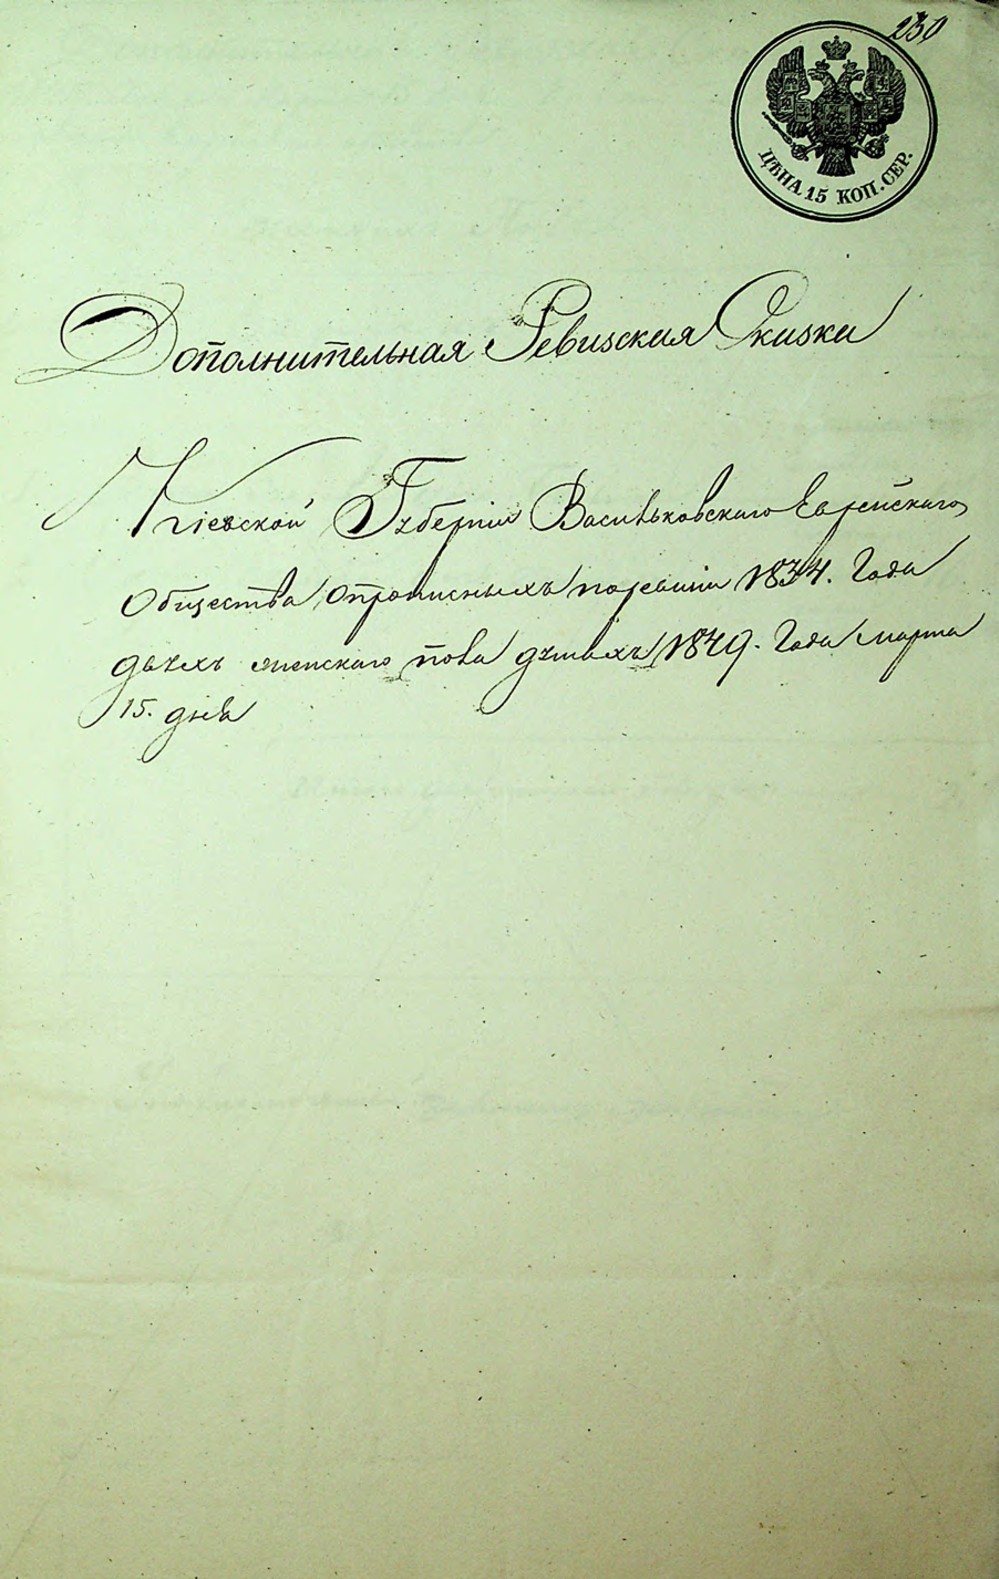 230
ЦѢНА 15 КОП. СЕР.
Дополнительная Ревизская Скизки
Кіевской Губерніи Васильковскаго Еврейскаго
Общества опрописныхъ поревизіи 1834. Года
двухъ женскаго пола душахъ 1849. Года марта
15. дня